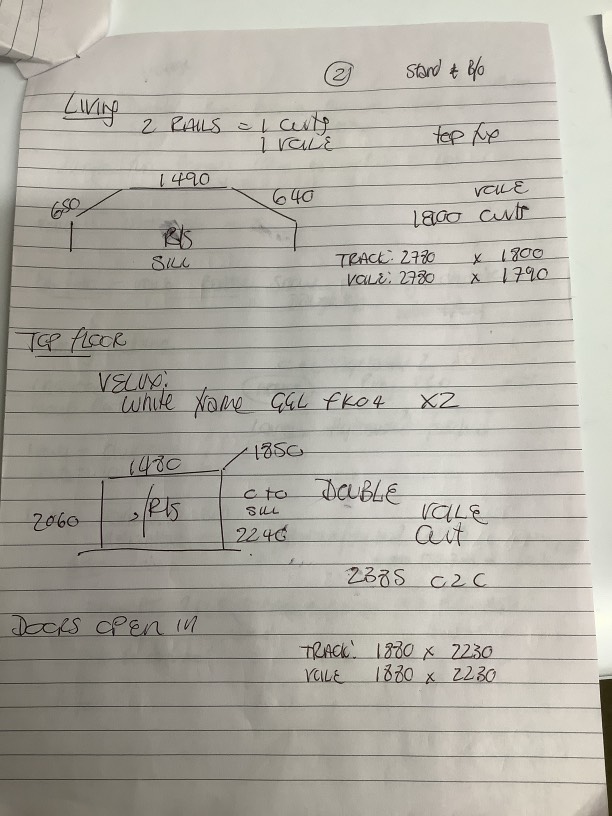 ② Stand & B/O
LIVING
2 RAILS = 1 Curts
1 VOILE
top fix
1490
650
640
VOILE
1800 Curts
R/S
SILL
TRACK: 2780 x 1800
VOILE: 2780 x 1790
TOP FLOOR
VELUX:
White frame GGL FK04 X2
1480
1850
2060
R/S
C to
SILL
2240
DOUBLE
VOILE
Curt
2385 C2C
DOORS OPEN IN
TRACK: 1880 x 2230
VOILE 1880 x 2230